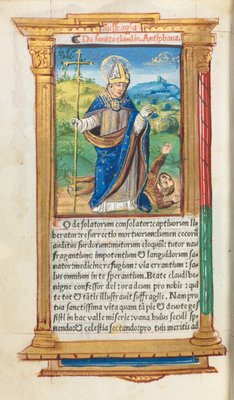 Suffragia
De sancto claudio. Antiphona.
O desolatorum consolator: captivorum li
berator: resurrectio mortuorum: lumen cecorū
auditus surdorum: mutorum eloquiū: tutor nau
fragantium: impotentium & languidorum sa
nator: medicine refugium: via errantium: sa
lus omnium in te sperantium. Beate claudi be
nigne confessor dei: ora deum pro nobis: qui
te tot & tātis illustravit suffragiis. Nam pro
tua sanctissima vita quam tā pie & devote ges
sisti in hac valle miserie: vana huius seculi sper
nendo: & celestia sectando: pro tuis meritis ad